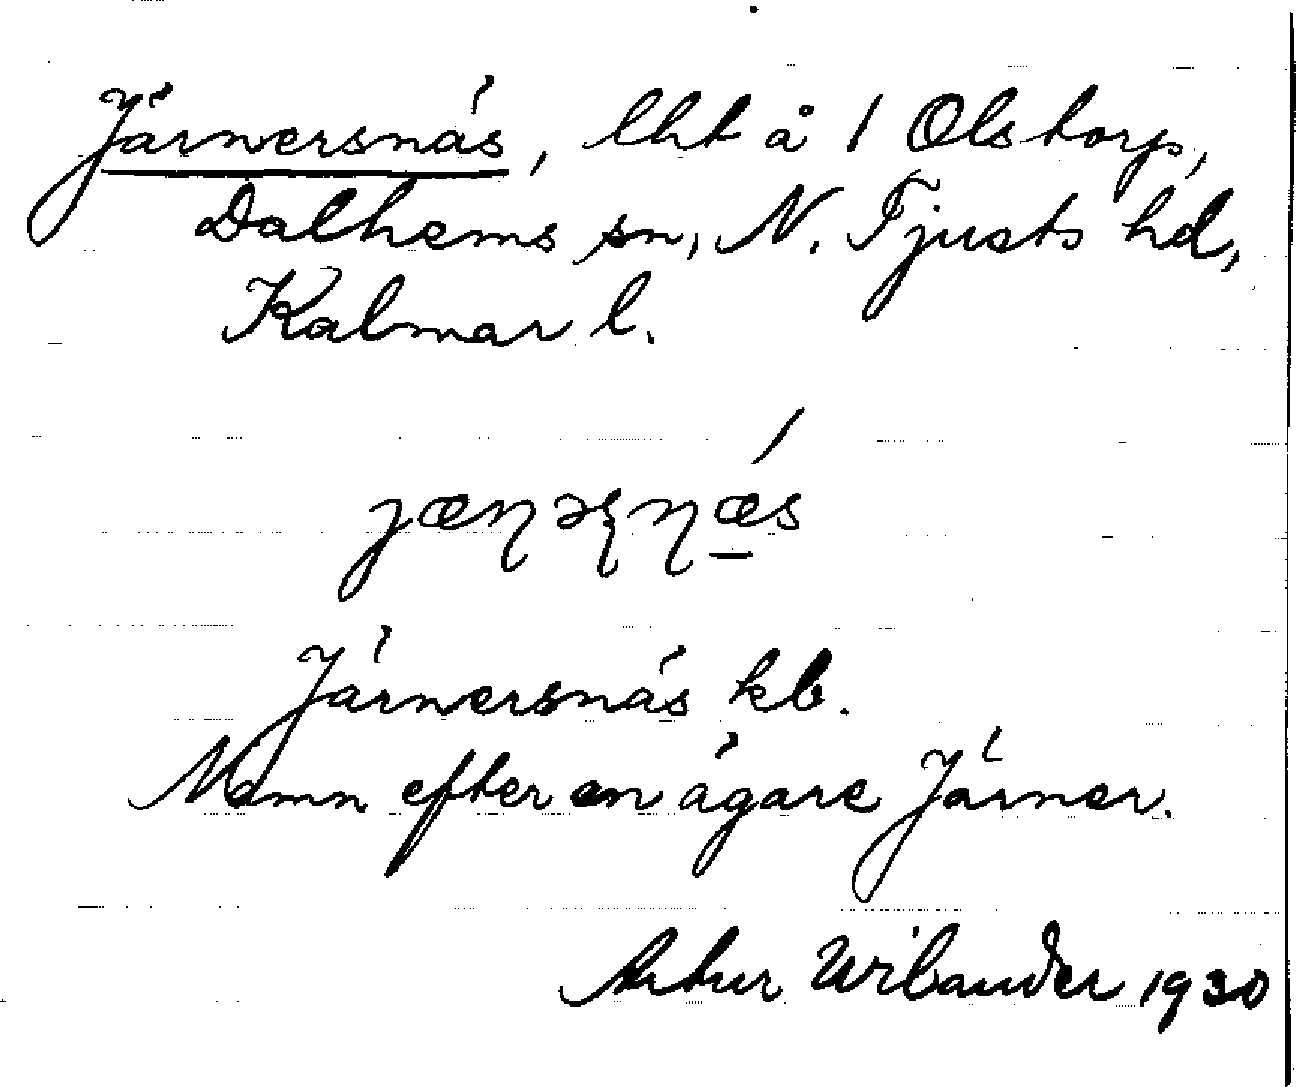 Järnersnäs, lht å 1 Olstorp,
Dalhems sn, N. Tjusts hd,
Kalmar l.
Järnersnäs kb.
Namn efter en ägare Järner.
Artur Wilander 1930